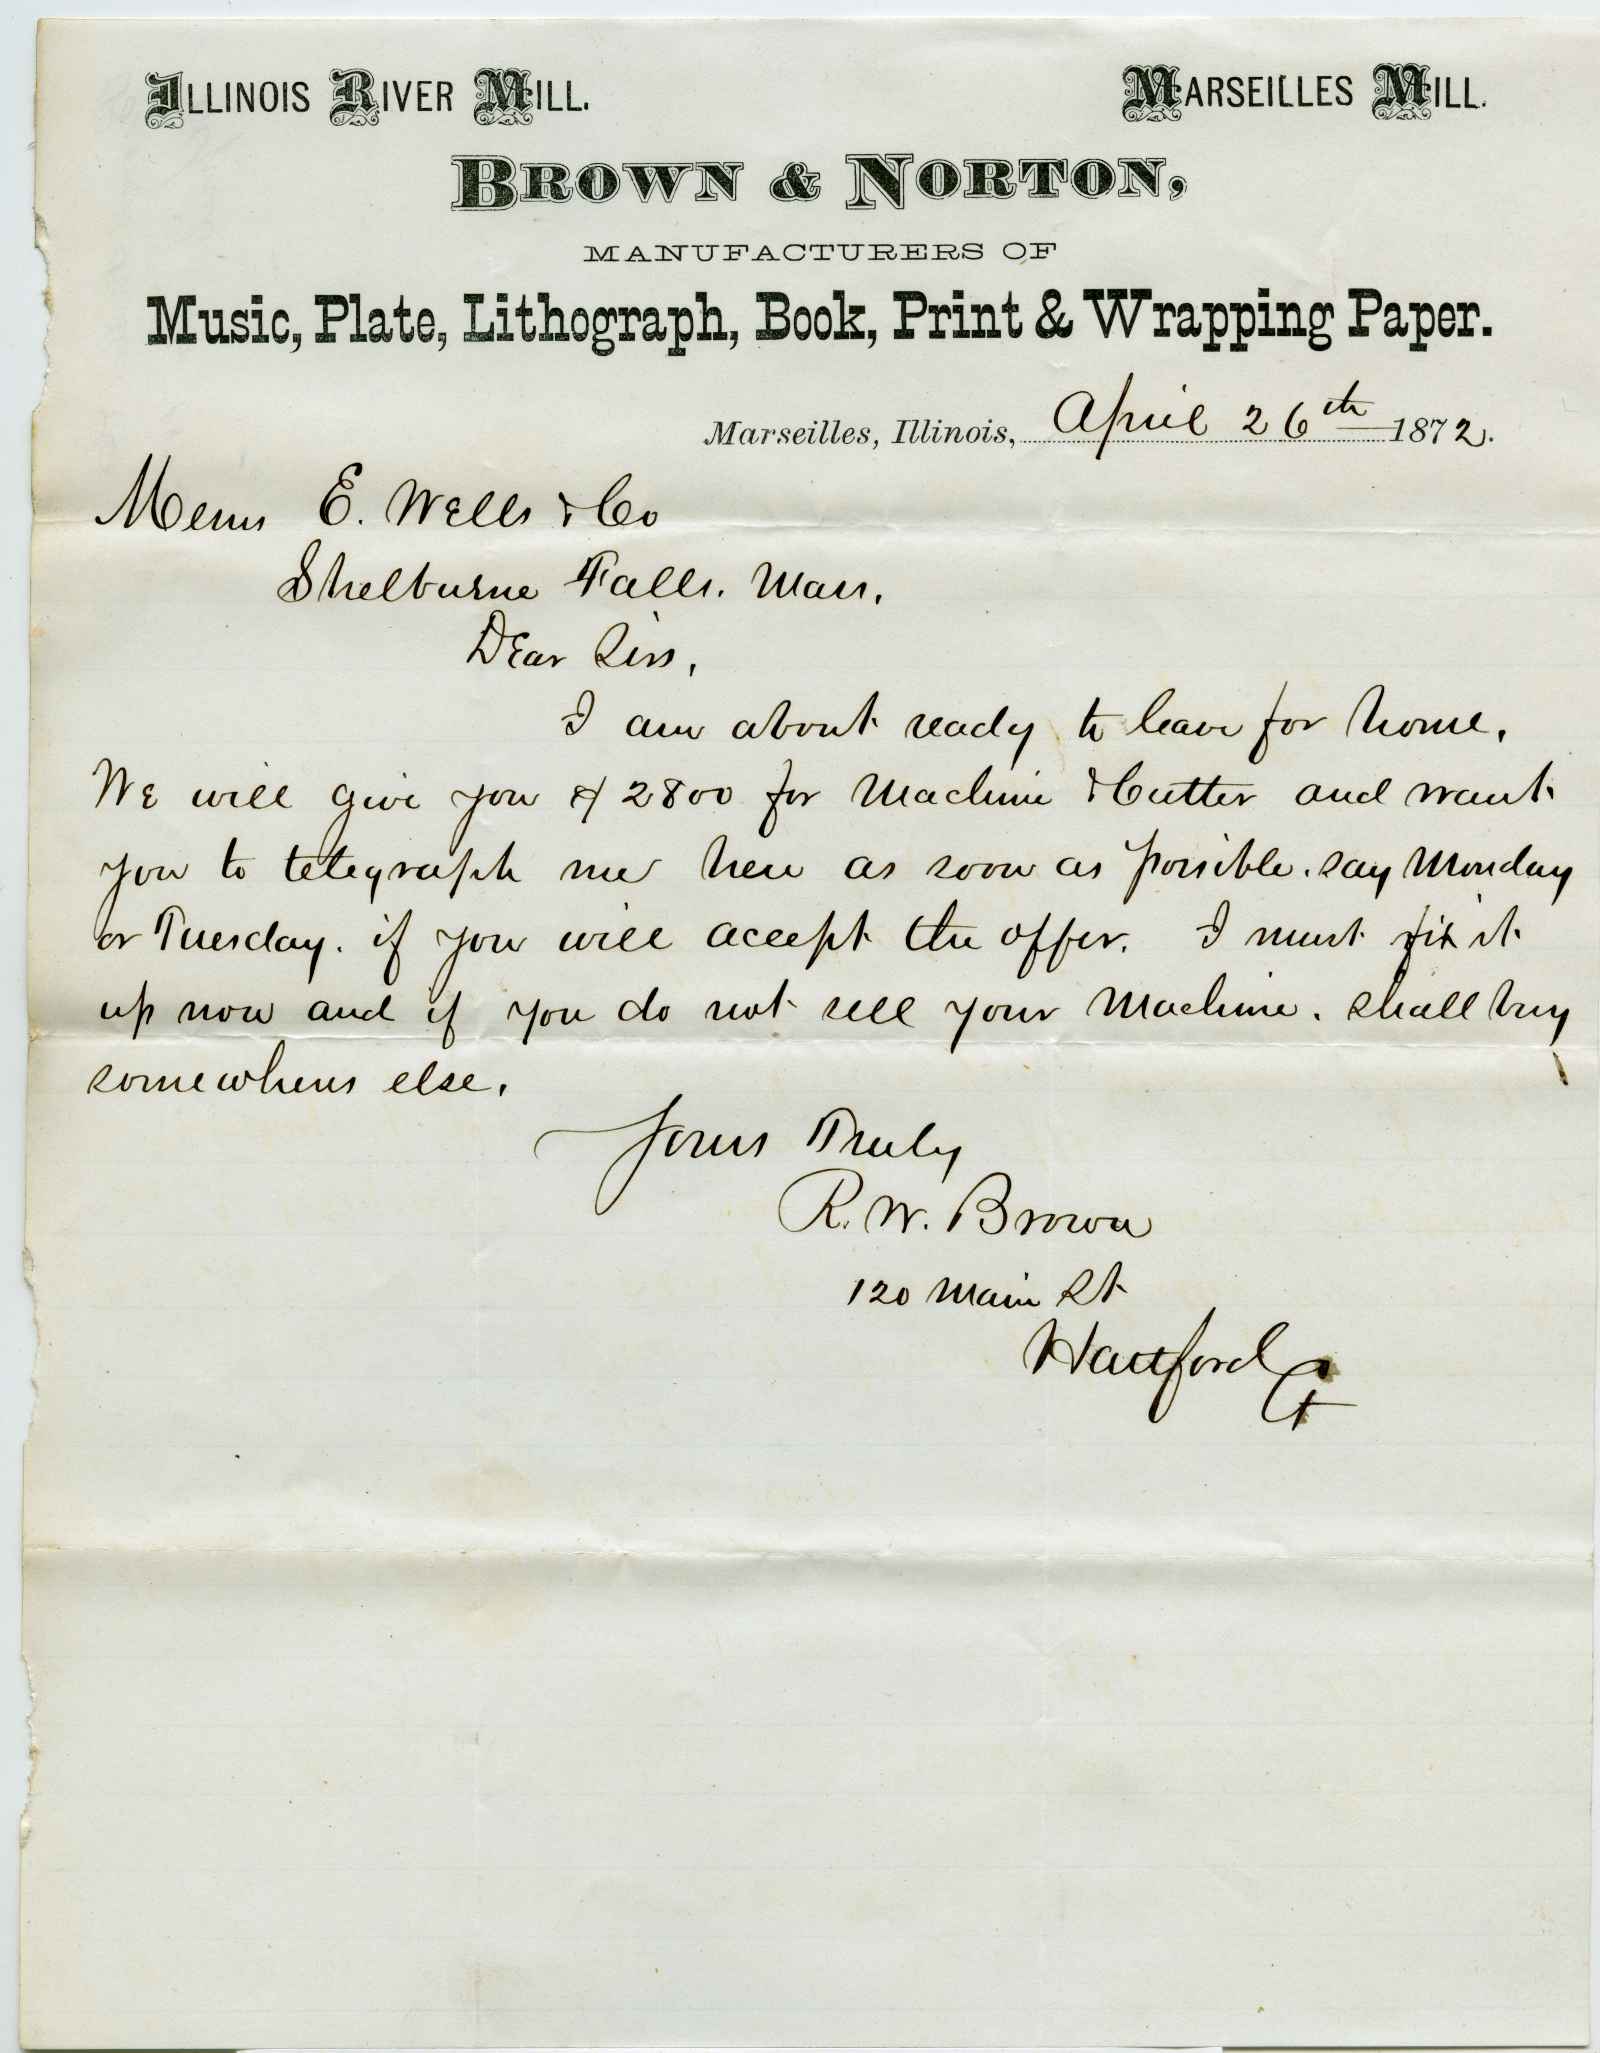 ILLINOIS RIVER MILL. MARSEILLES MILL.
BROWN & NORTON,
MANUFACTURERS OF
Music, Plate, Lithograph, Book, Print & Wrapping Paper.
Marseilles, Illinois, April 26th 1872.
Messrs E. Wells & Co
Shelburne Falls. Mass.
Dear Sirs,
I am about ready to leave for home.
We will give you $2800 for Machine & Cutter and want
you to telegraph me here as soon as possible. say Monday
or Tuesday. if you will accept the offer. I must fix it
up now and if you do not sell your Machine. shall buy
somewheres else.
Yours Truly
R. W. Brown
120 Main St
Hartford Ct